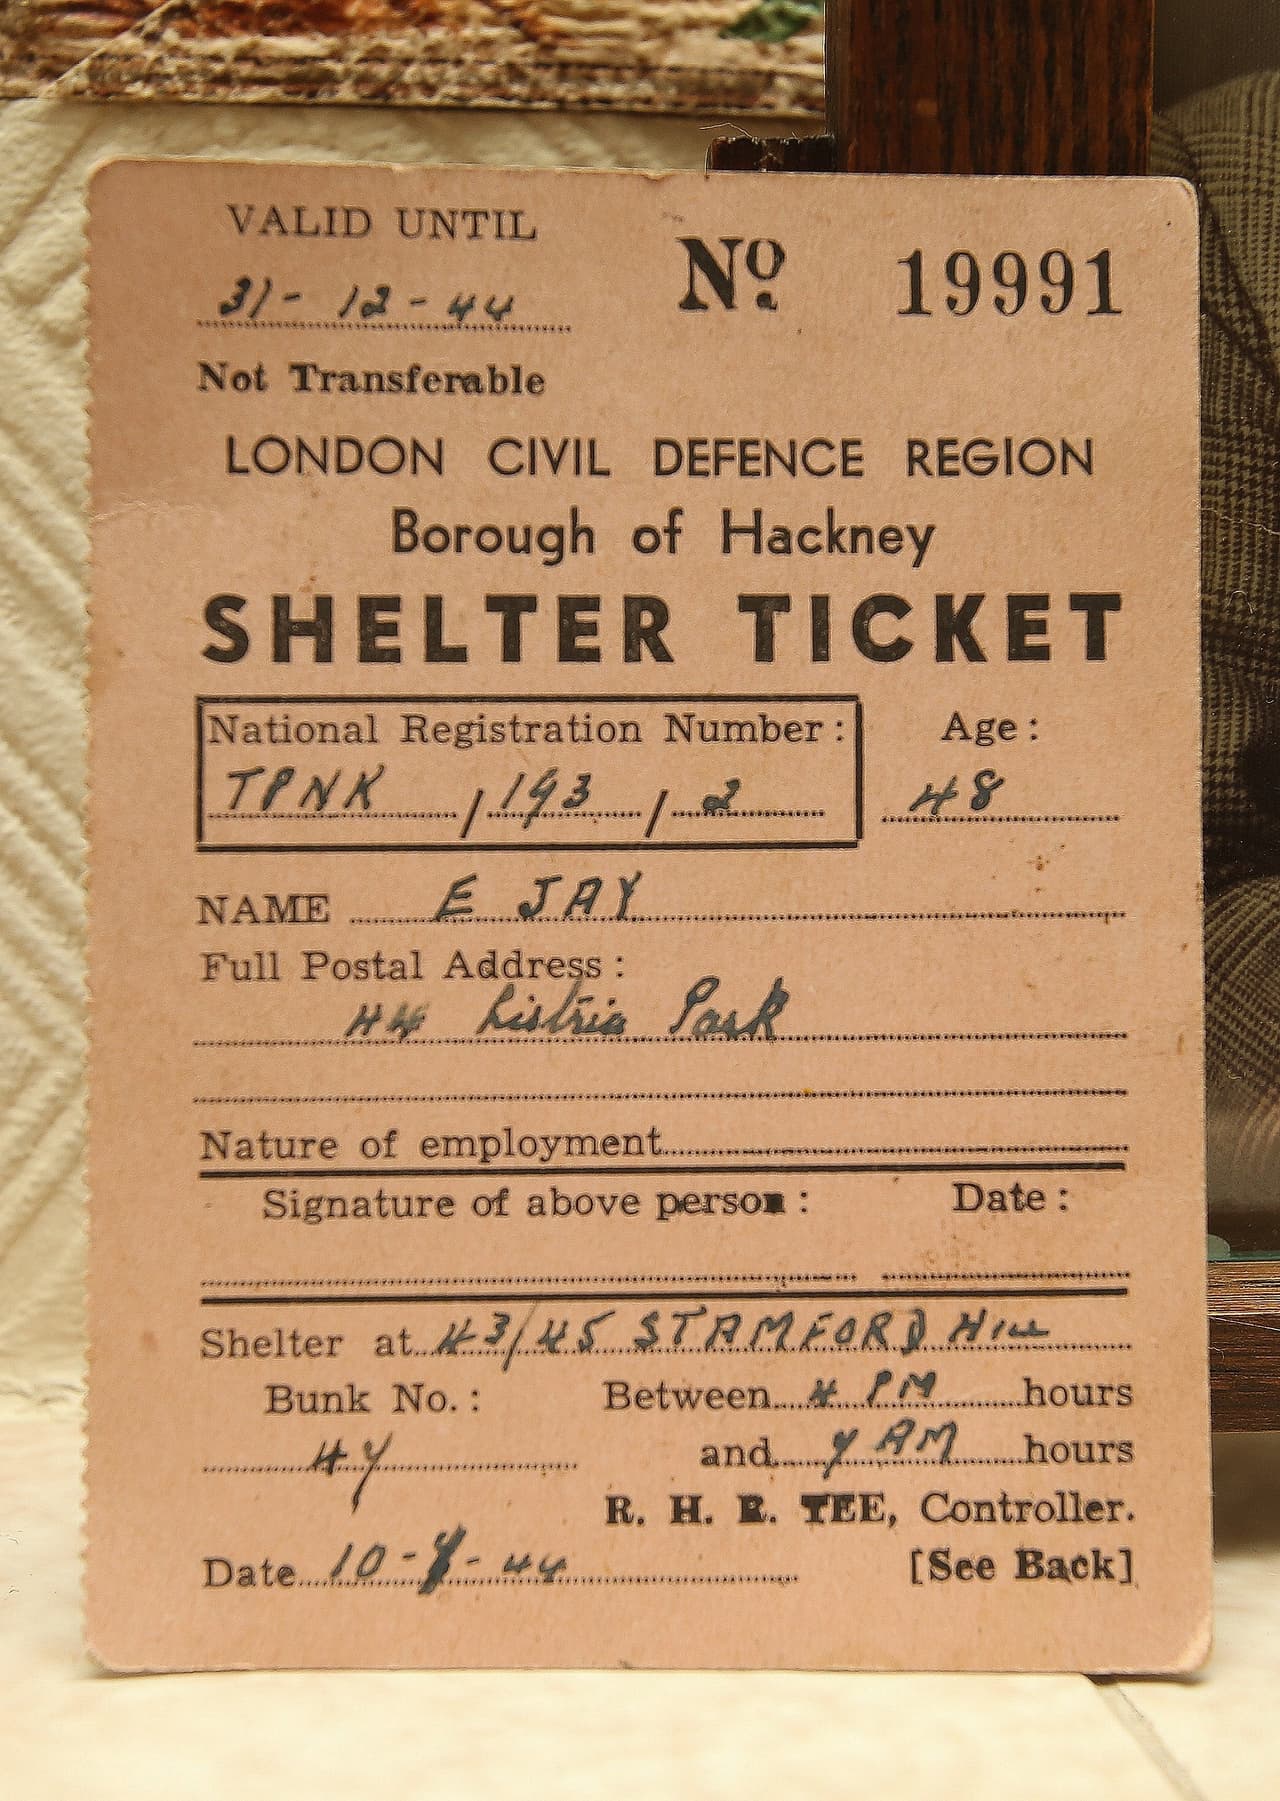 VALID UNTIL
31 - 12 - 44
Nº 19991
Not Transferable
LONDON CIVIL DEFENCE REGION
Borough of Hackney
SHELTER TICKET
National Registration Number: Age:
TPNK / 193 / 2 48
NAME E JAY
Full Postal Address:
44 Listria Park
Nature of employment
Signature of above person: Date:
Shelter at 43/45 STAMFORD Hill
Bunk No.: Between 4 PM hours
and AM hours
R. H. R. TEE, Controller.
Date 10 - - 44 [See Back]